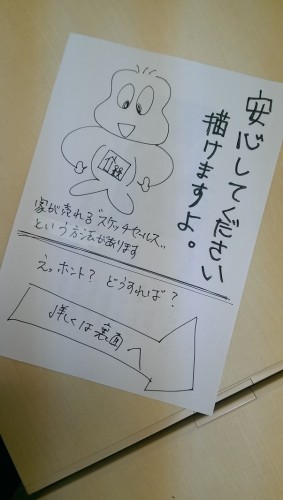 安心してください
描けますよ。
家が売れる゛スケッチセールス〟
という方法があります
え。ホント? どうすれば?
詳しくは裏面へ